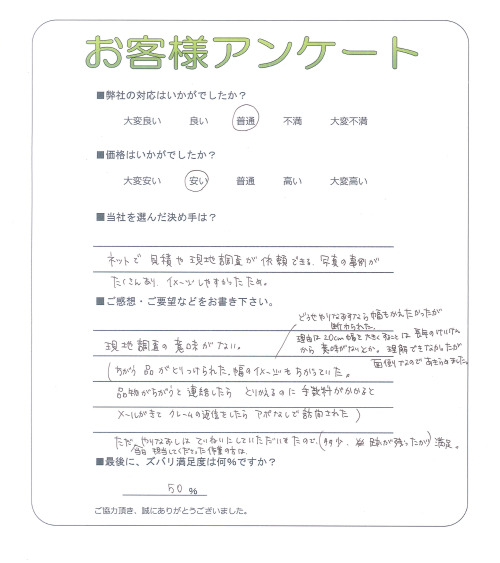 お客様アンケート
■弊社の対応はいかがでしたか?
大変良い 良い 普通 不満 大変不満
■価格はいかがでしたか?
大変安い 安い 普通 高い 大変高い
■当社を選んだ決め手は?
ネットで見積や現地調査が依頼できる、写真の事例が
たくさんあり、イメージしやすかったため。
■ご感想・ご要望などをお書き下さい。
どうせやりなおすなら幅もかえたかったが
断わられた。
理由は20cm幅を大きくすることは長年のけいけん
から意味がないとか。理解できなかったが
面倒なのであきらめました。
現地調査の意味がない。
(ちがう品がとりつけられた。幅のイメージもちがっていた。
品物がちがうと連絡したらとりかえるのに手数料がかかると
メールがきてクレームの返信をしたらアポなしで訪問された)
ただ、やりなおしはていねいにしていただいたので、(多少、跡が残ったが)満足。
当日担当してくださった作業の方は、
■最後に、ズバリ満足度は何%ですか?
50 %
ご協力頂き、誠にありがとうございました。